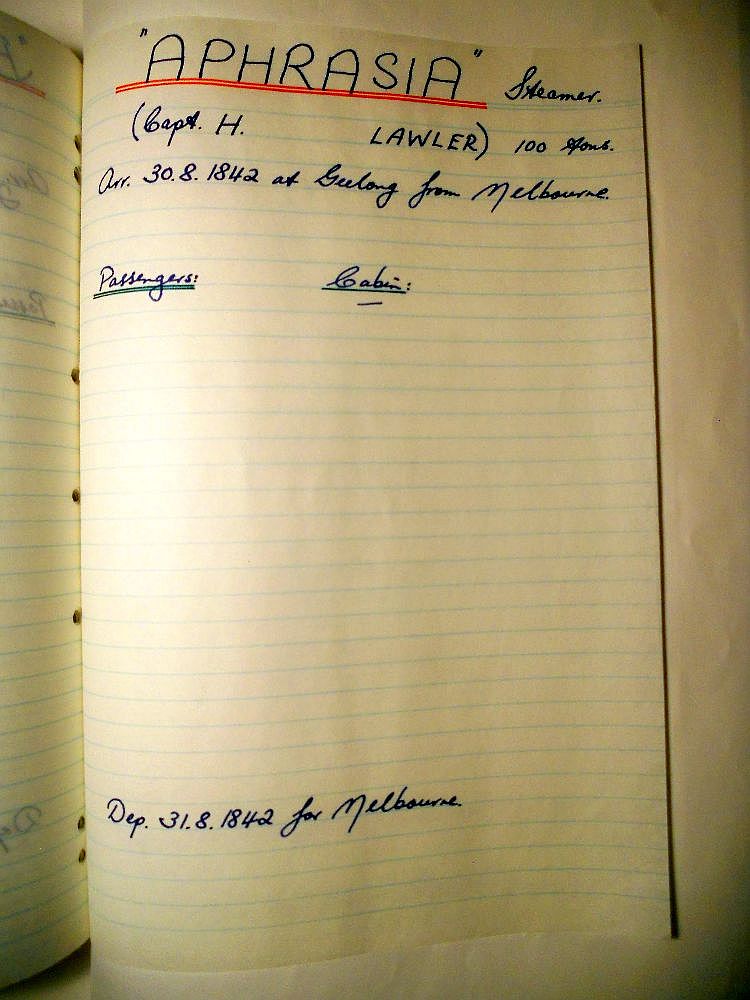 "APHRASIA" Steamer.
(Capt. H. LAWLER) 100 tons.
Arr. 30.8.1842 at Geelong from Melbourne.
Passengers: Cabin:
—
Dep. 31.8.1842 for Melbourne.